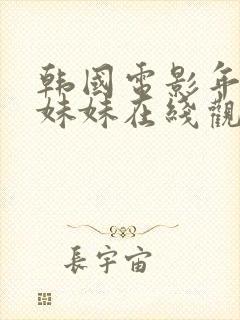 韩國電影年
妹妹在綫觀
長宇宙